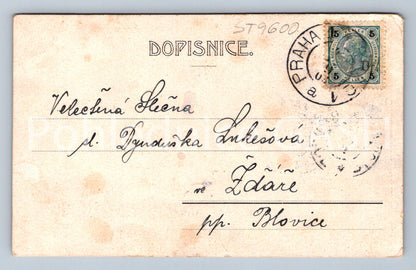 ST9600
DOPISNICE.
PRAHA 1
5 5
Velectěná Slečna
sl. Lukešová
ve Žďáře
pp. Blovice